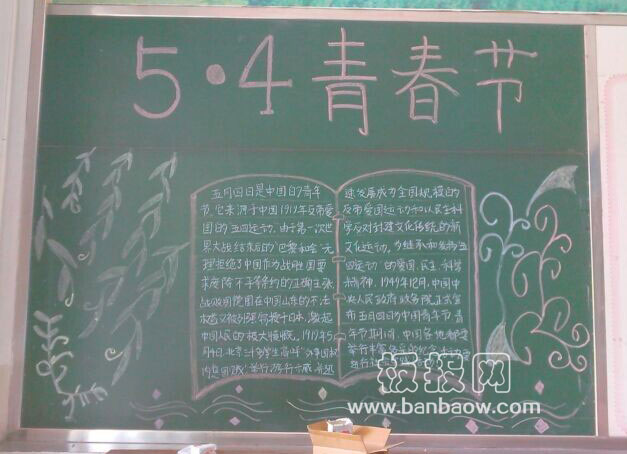 5·4青春节
五月四日是中国的青年
节,它来源于中国1919年反帝爱
国的"五四运动"由于第一次世
界大战结束后的"巴黎和会"无
理拒绝了中国作为战胜国要
求废除不平等条约的正确主张
战败前德国在中国山东的不法
权益又被列强转授于日本,激起
中国人民的极大愤慨。1919年5
月4日,北京三千多学生高呼"外争国权
内惩国贼"举行游行示威,并迅
速发展成为全国规模的
反帝爱国运动和以民主科
学反对封建文化传统的新
文化运动。为继承和发扬"五
四运动"的爱国、民主、科学
精神,1949年12月,中国中
央人民政府政务院正式宣
布五月四日为中国青年节,青
年节期间,中国各地都要
举行丰富多彩的纪念活动
板报网
www.banbaow.com